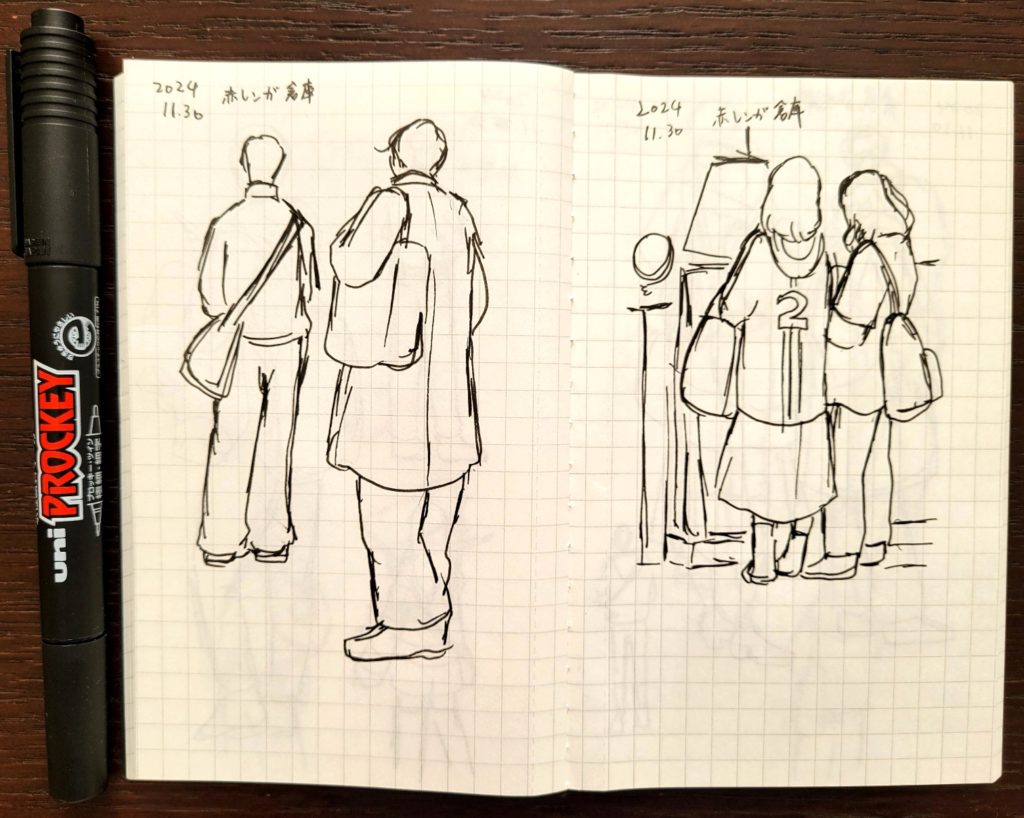 2024
11.30
赤レンガ倉庫
2024
11.30
赤レンガ倉庫
2
uni PROCKEY
プロッキー・ツイン
細・極細